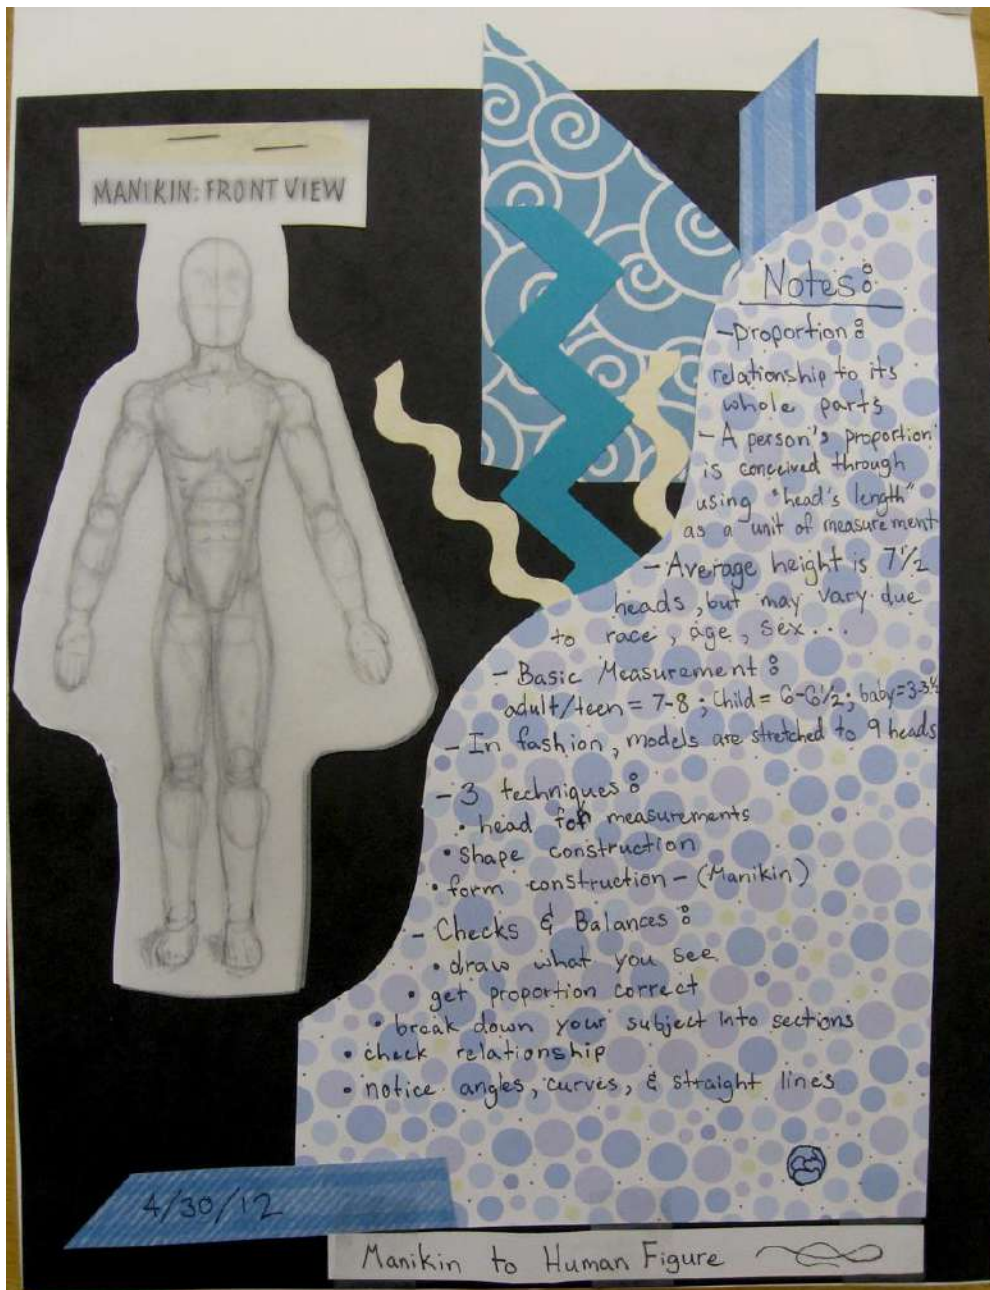 MANIKIN: FRONT VIEW
Notes:
- Proportion:
relationship to its
whole parts
- A person's proportion
is conceived through
using "head's length"
as a unit of measurement
- Average height is 7 1/2
heads, but may vary due
to race, age, sex...
- Basic Measurement:
adult/teen = 7-8; Child = 6-6 1/2; baby = 3-3 1/2
- In fashion, models are stretched to 9 heads
- 3 techniques:
• head for measurements
• Shape construction
• form construction - (Manikin)
- Checks & Balances:
• draw what you see
• get proportion correct
• break down your subject into sections
• check relationship
• notice angles, curves, & straight lines
4/30/12
Manikin to Human Figure